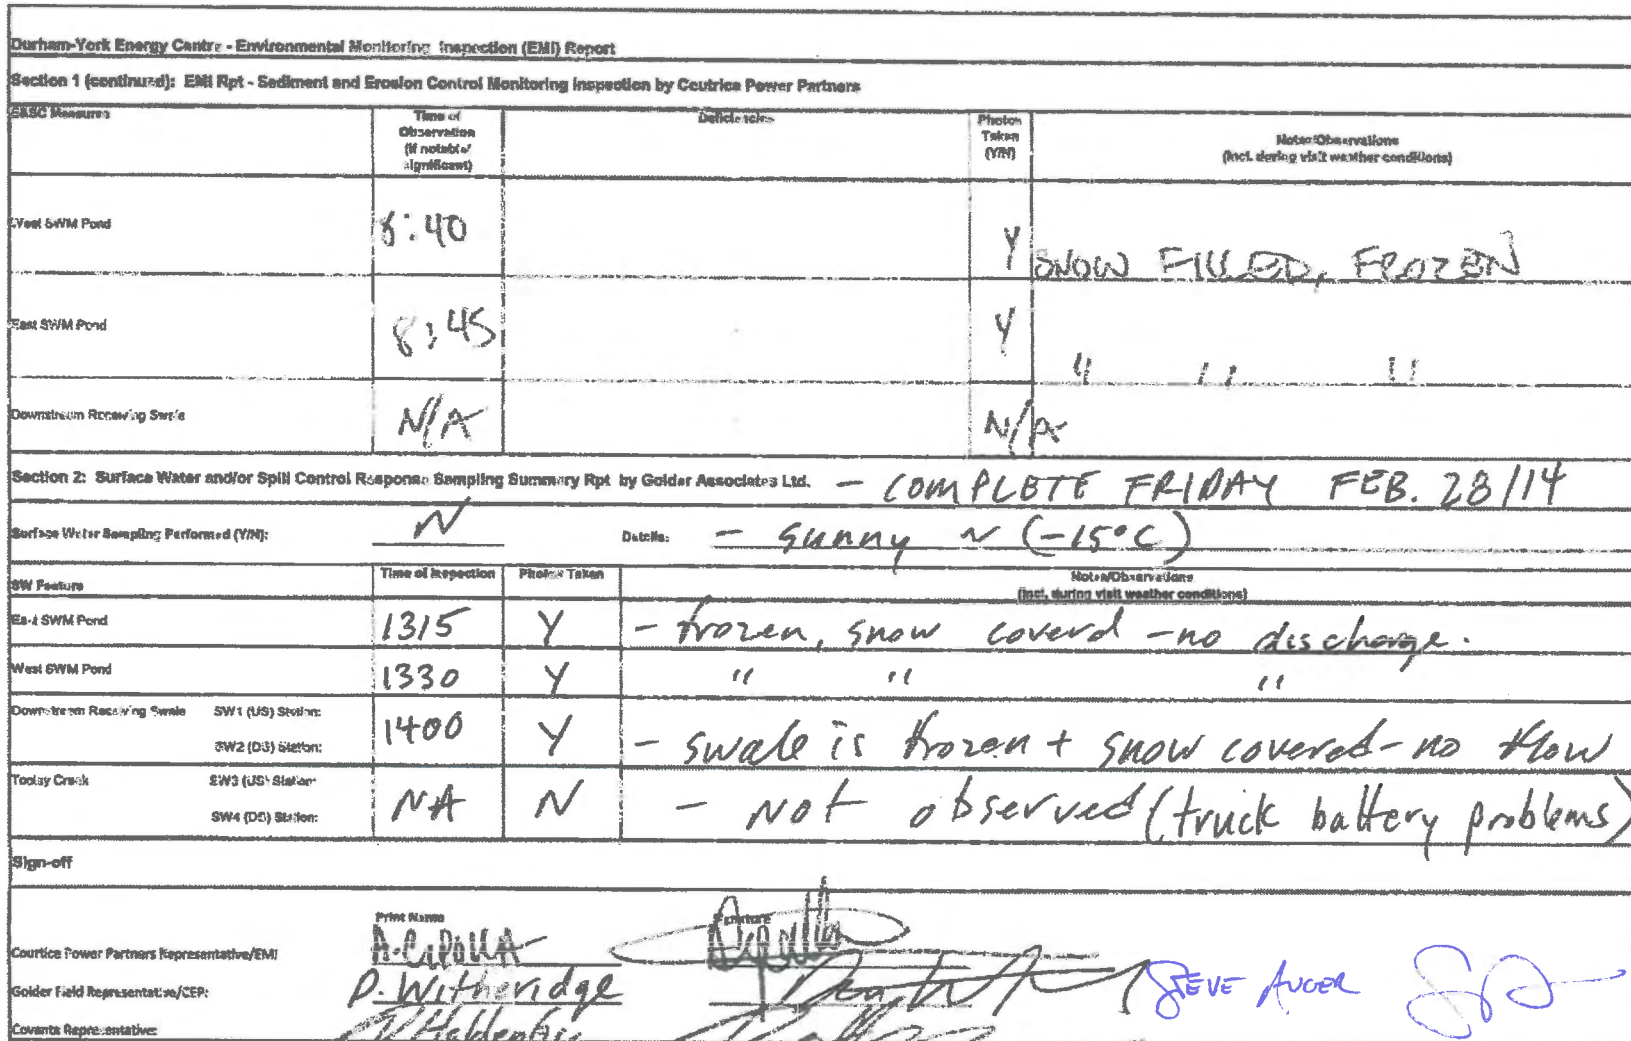 Durham-York Energy Centre - Environmental Monitoring Inspection (EMI) Report
Section 1 (continued): EMI Rpt - Sediment and Erosion Control Monitoring Inspection by Coutrice Power Partners
E&SC Measures Time of Observation (if notable/ significant) Deficiencies Photos Taken (Y/N) Notes/Observations (incl. during visit weather conditions)
West SWM Pond 8:40 Y SNOW FILLED, FROZEN
East SWM Pond 8:45 Y " " "
Downstream Receiving Swale N/A N/A
Section 2: Surface Water and/or Spill Control Response Sampling Summary Rpt by Golder Associates Ltd. - COMPLETE FRIDAY FEB. 28/14
Surface Water Sampling Performed (Y/N): N Details: - sunny ~ (-15°C)
SW Feature Time of Inspection Photos Taken Notes/Observations (incl. during visit weather conditions)
East SWM Pond 1315 Y - frozen, snow coverd - no discharge.
West SWM Pond 1330 Y " " "
Downstream Receiving Swale SW1 (US) Station: SW2 (DS) Station: 1400 Y - swale is frozen + snow covered - no flow
Tooley Creek SW3 (US) Station: SW4 (DS) Station: NA N - Not observed (truck battery problems)
Sign-off
Print Name Signature
Courtice Power Partners Representative/EMI
Golder Field Representative/CEP: D. Witheridge STEVE AUGER
Covanta Representative: